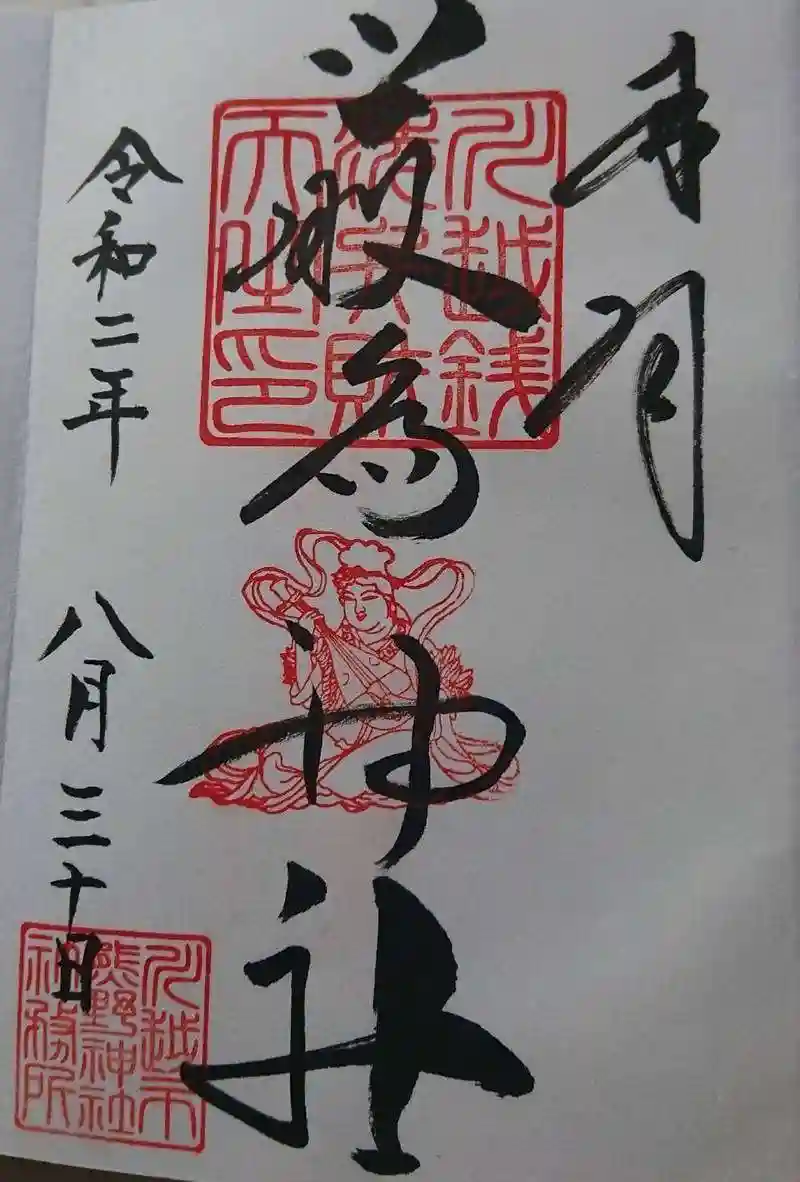 奉拝
川越銭
洗弁財
天之印
厳島神社
令和二年 八月三十日
川越市
熊野神社
社務所